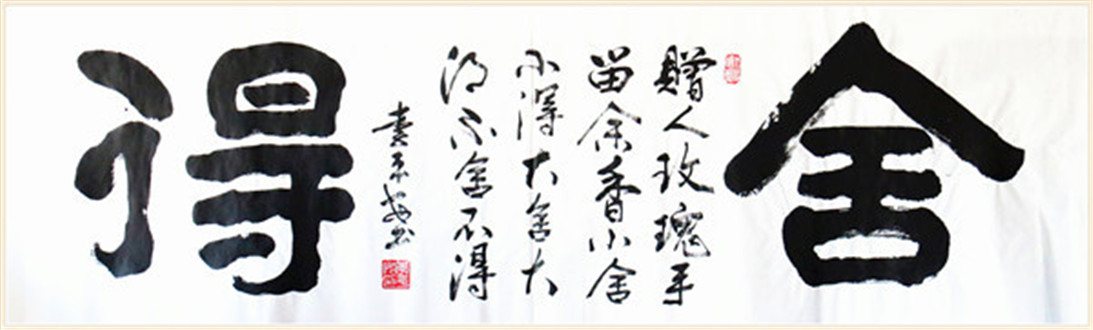 舍
贈人玫瑰手
留余香小舍
小得大舍大
得不舍不得
得